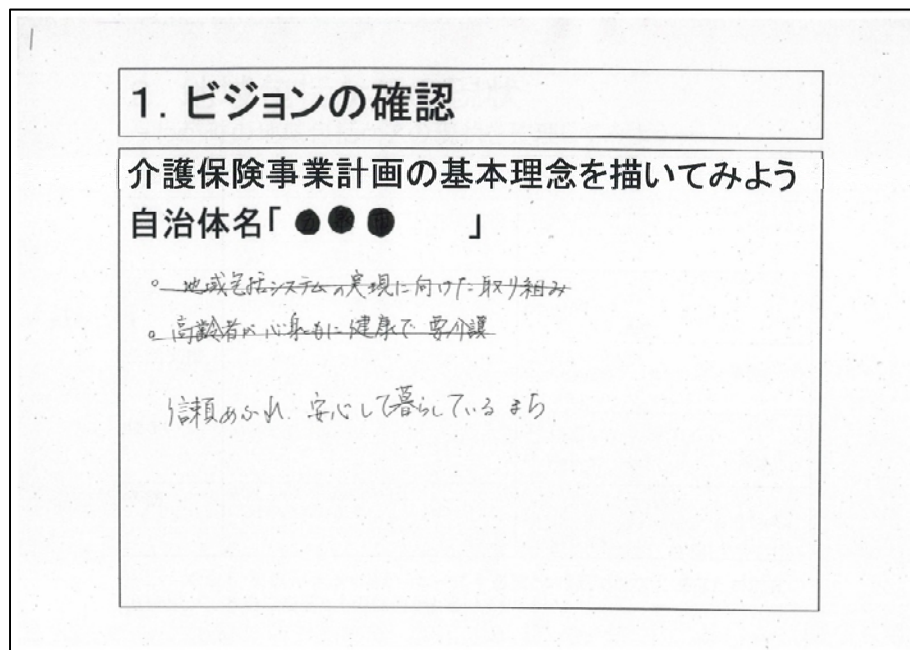 1
1. ビジョンの確認
介護保険事業計画の基本理念を描いてみよう
自治体名「●●●　　」
○ 地域包括システムの実現に向けた取り組み
○ 高齢者が心身ともに健康で要介護
信頼あふれ 安心して暮らしているまち